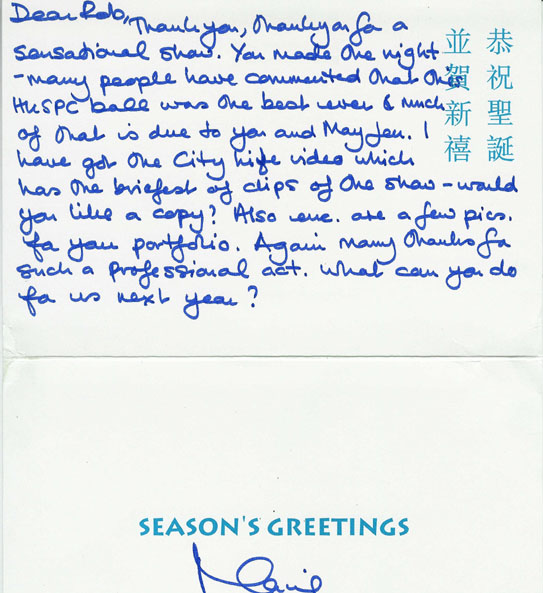 Dear Rob, Thank you, thank you for a
sensational show. You made the night
- many people have commented that this
HKSPC ball was the best ever & much
of that is due to you and May Jen. I
have got the City Life video which
has the briefest of clips of the show - would
you like a copy? Also enc. are a few pics.
for your portfolio. Again many thanks for
such a professional act. What can you do
for us next year?
恭祝聖誕
並賀新禧
SEASON'S GREETINGS